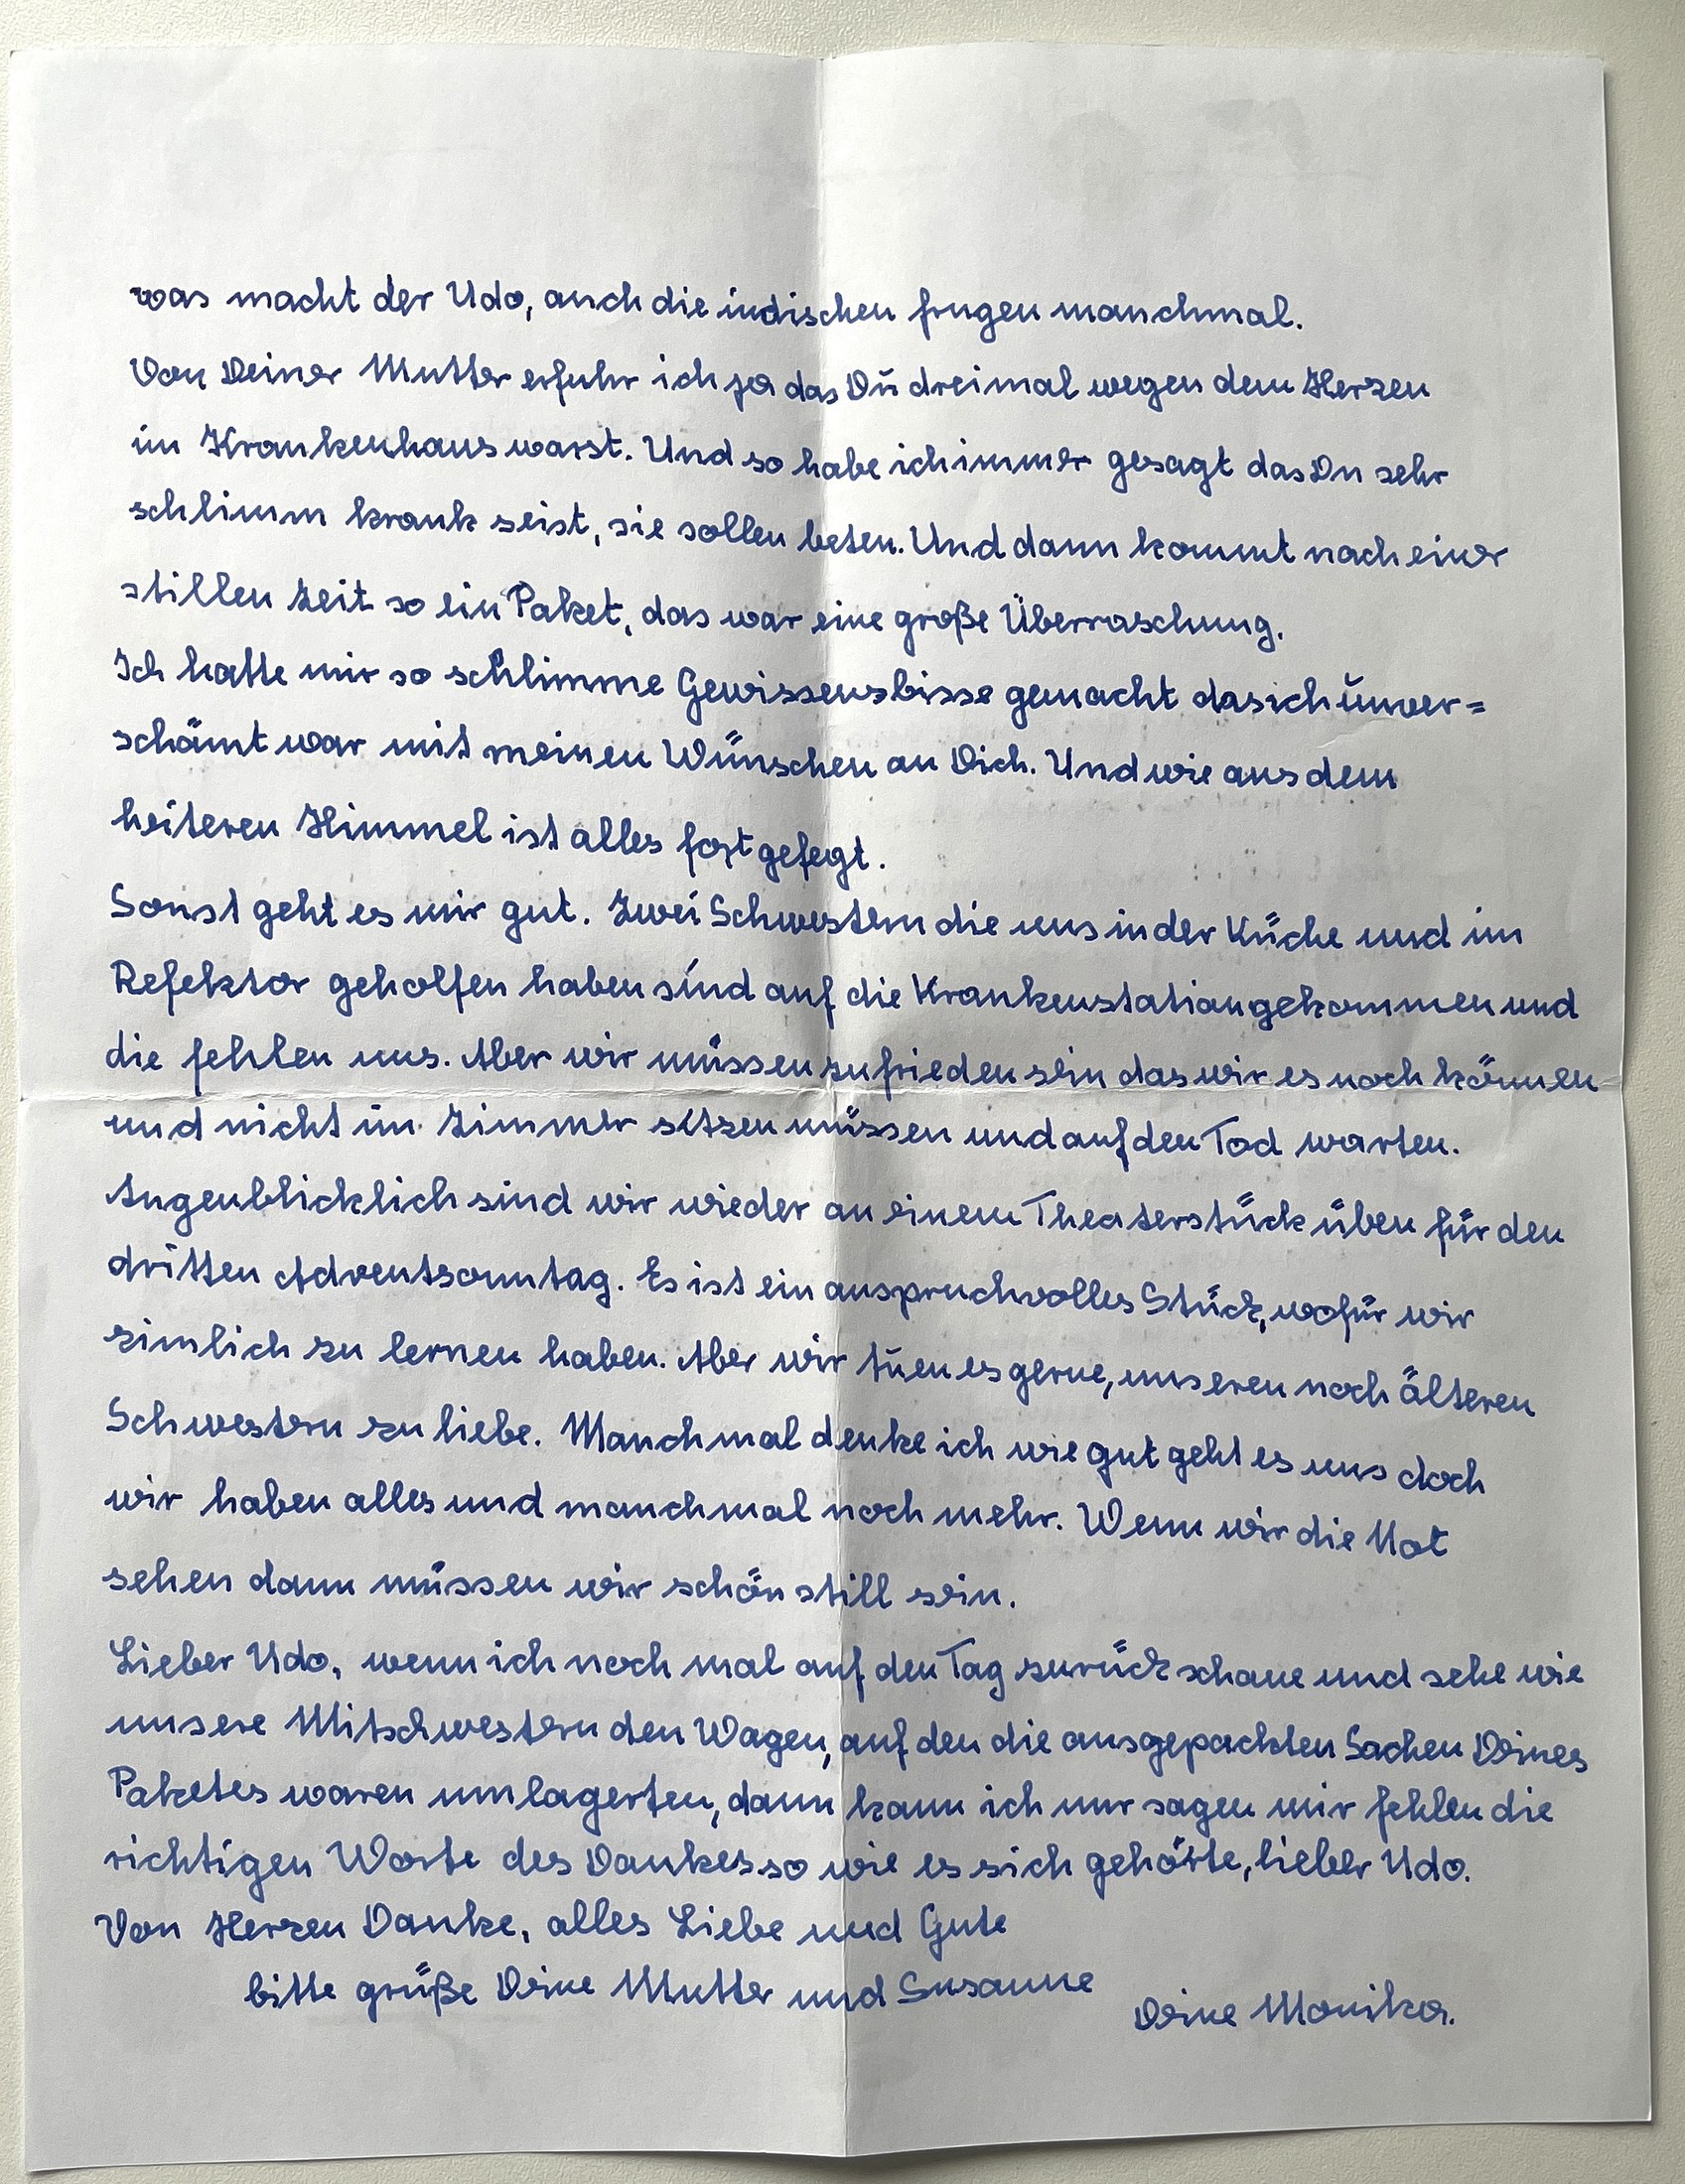 was macht der Udo, auch die indischen frugen manchmal.
Von Deiner Mutter erfuhr ich ja das Du dreimal wegen dem Herzen
im Krankenhaus warst. Und so habe ich immer gesagt das Du sehr
schlimm krank seist, sie sollen beten. Und dann kommt nach einer
stillen Zeit so ein Paket, das war eine große Überraschung.
Ich hatte mir so schlimme Gewissensbisse gemacht das ich unver=
schämt war mit meinen Wünschen an Dich. Und wie aus dem
heiteren Himmel ist alles fort gefegt.
Sonst geht es mir gut. Zwei Schwestern die uns in der Küche und im
Refektor geholfen haben sind auf die Krankenstation gekommen und
die fehlen uns. Aber wir müssen zufrieden sein das wir es noch können
und nicht im Zimmer sitzen müssen und auf den Tod warten.
Augenblicklich sind wir wieder an einem Theaterstück üben für den
dritten Adventsonntag. Es ist ein anspruchvolles Stück, wofür wir
zimlich zu lernen haben. Aber wir tuen es gerne, unseren noch älteren
Schwestern zu liebe. Manchmal denke ich wie gut geht es uns doch
wir haben alles und manchmal noch mehr. Wenn wir die Not
sehen dann müssen wir schön still sein.
Lieber Udo, wenn ich noch mal auf den Tag zurück schaue und sehe wie
unsere Mitschwestern den Wagen, auf den die ausgepackten Sachen Deines
Paketes waren umlagerten, dann kann ich nur sagen mir fehlen die
richtigen Worte des Dankes so wie es sich gehörte, lieber Udo.
Von Herzen Danke, alles Liebe und Gute
bitte grüße Deine Mutter und Susanne
Deine Monika.